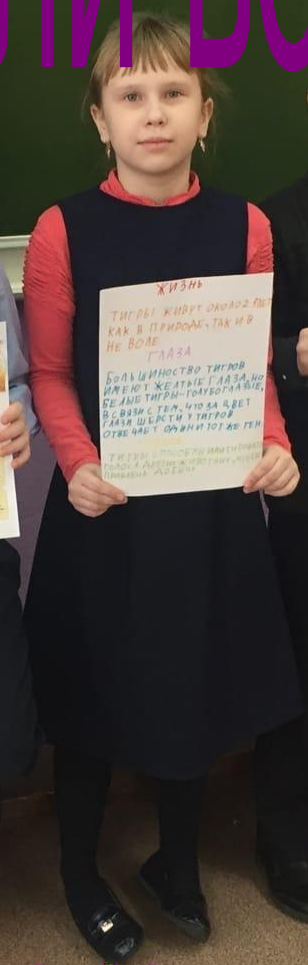 ЛИ ВО
ЖИЗНЬ
ТИГРЫ ЖИВУТ ОКОЛО 2
КАК В ПРИРОДЕ, ТАК И В
НЕ ВОЛЕ
ГЛАЗА
БОЛЬШИНОСТВО ТИГРОВ
ИМЕЮТ ЖЕЛТЫЕ ГЛАЗА, НО
БЕЛЫЕ ТИГРЫ-ГОЛУБОГЛАЗЫЕ,
В СВЯЗИ С ТЕМ, ЧТО ЗА ЦВЕТ
ГЛАЗ И ШЕРСТИ У ТИГРОВ
ОТВЕЧАЕТ ОДИН И ТОТ ЖЕ ГЕН.
ТИГРЫ СПОСОБНЫ
ГОЛОСА ДРУГИХ ЖИВОТНЫХ,